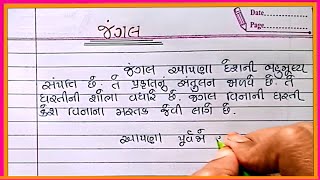 Date......
Page......
જંગલ
જંગલ આપણા દેશની બહુમૂલ્ય
સંપત્તિ છે. તે પ્રકૃતિનું સંતુલન જાળવે છે. તે
ધરતીની શોભા વધારે છે. જંગલ વિનાની ધરતી
કેશ વિનાના મસ્તક જેવી લાગે છે.
આપણા પૂર્વજો